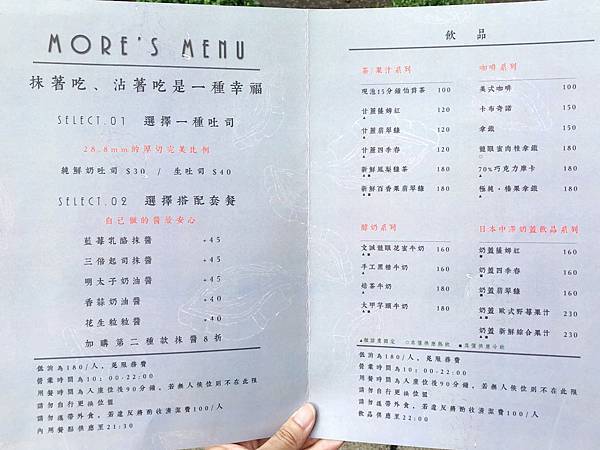 MORE'S MENU
抹著吃、沾著吃是一種幸福
SELECT.01 選擇一種吐司
28.8mm的厚切完美比例
純鮮奶吐司 $30 / 生吐司 $40
SELECT.02 選擇搭配套餐
自己做的醬最安心
藍莓乳酪抹醬 +45
三倍起司抹醬 +45
明太子奶油醬 +45
香蒜奶油醬 +40
花生粒粒醬 +40
加購第二種款抹醬8折
低消為180/人，免服務費
營業時間為10:00-22:00
用餐時間為入座位後90分鐘，若無人候位則不在此限
請勿自行更換位置
請勿攜帶外食，若違反將酌收清潔費100/人
內用餐點供應至21:30
飲品
茶/果汁系列
現泡15分鐘伯爵茶 100
甘蔗蘿娜紅 120
甘蔗翡翠綠 120
甘蔗四季春 120
新鮮鳳梨綠茶 180
新鮮百香果翡翠綠 180
醇奶系列
文誠龍眼花蜜牛奶 160
手工黑糖牛奶 160
焙茶牛奶 160
大甲芋頭牛奶 160
咖啡系列
美式咖啡 100
卡布奇諾 150
拿鐵 150
龍眼蜜肉桂拿鐵 180
70%巧克力摩卡 180
極純·榛果拿鐵 180
日本中澤奶蓋飲品系列
奶蓋蘿娜紅 160
奶蓋四季春 160
奶蓋翡翠綠 160
奶蓋 歐式野莓果汁 230
奶蓋 新鮮綜合果汁 230
▲甜設度固定 ○並僅供應熱飲 ■並僅供應冷飲
低消為180/人，免服務費
營業時間為10:00-22:00
用餐時間為入座位後90分鐘，若無人候位則不在此限
請勿自行更換位置
請勿攜帶外食，若違反將酌收清潔費100/人
飲品供應至22:00